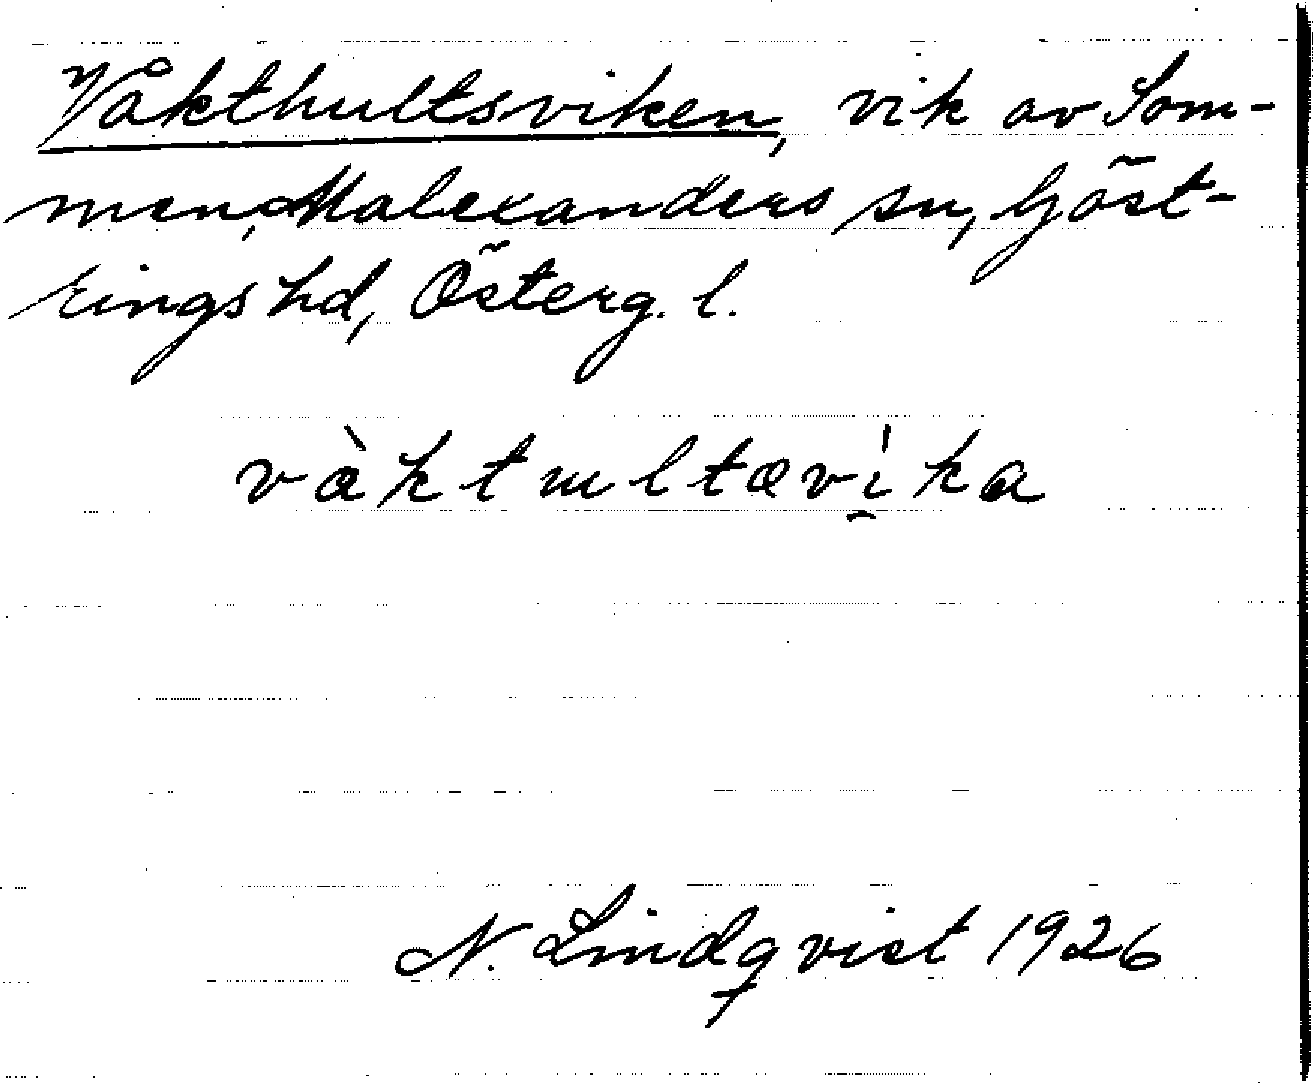 Våkthultsviken, vik av Som-
men, Malexanders sn, Göst-
rings hd, Österg. l.
vàktultavi̱̍ka
N. Lindqvist 1926